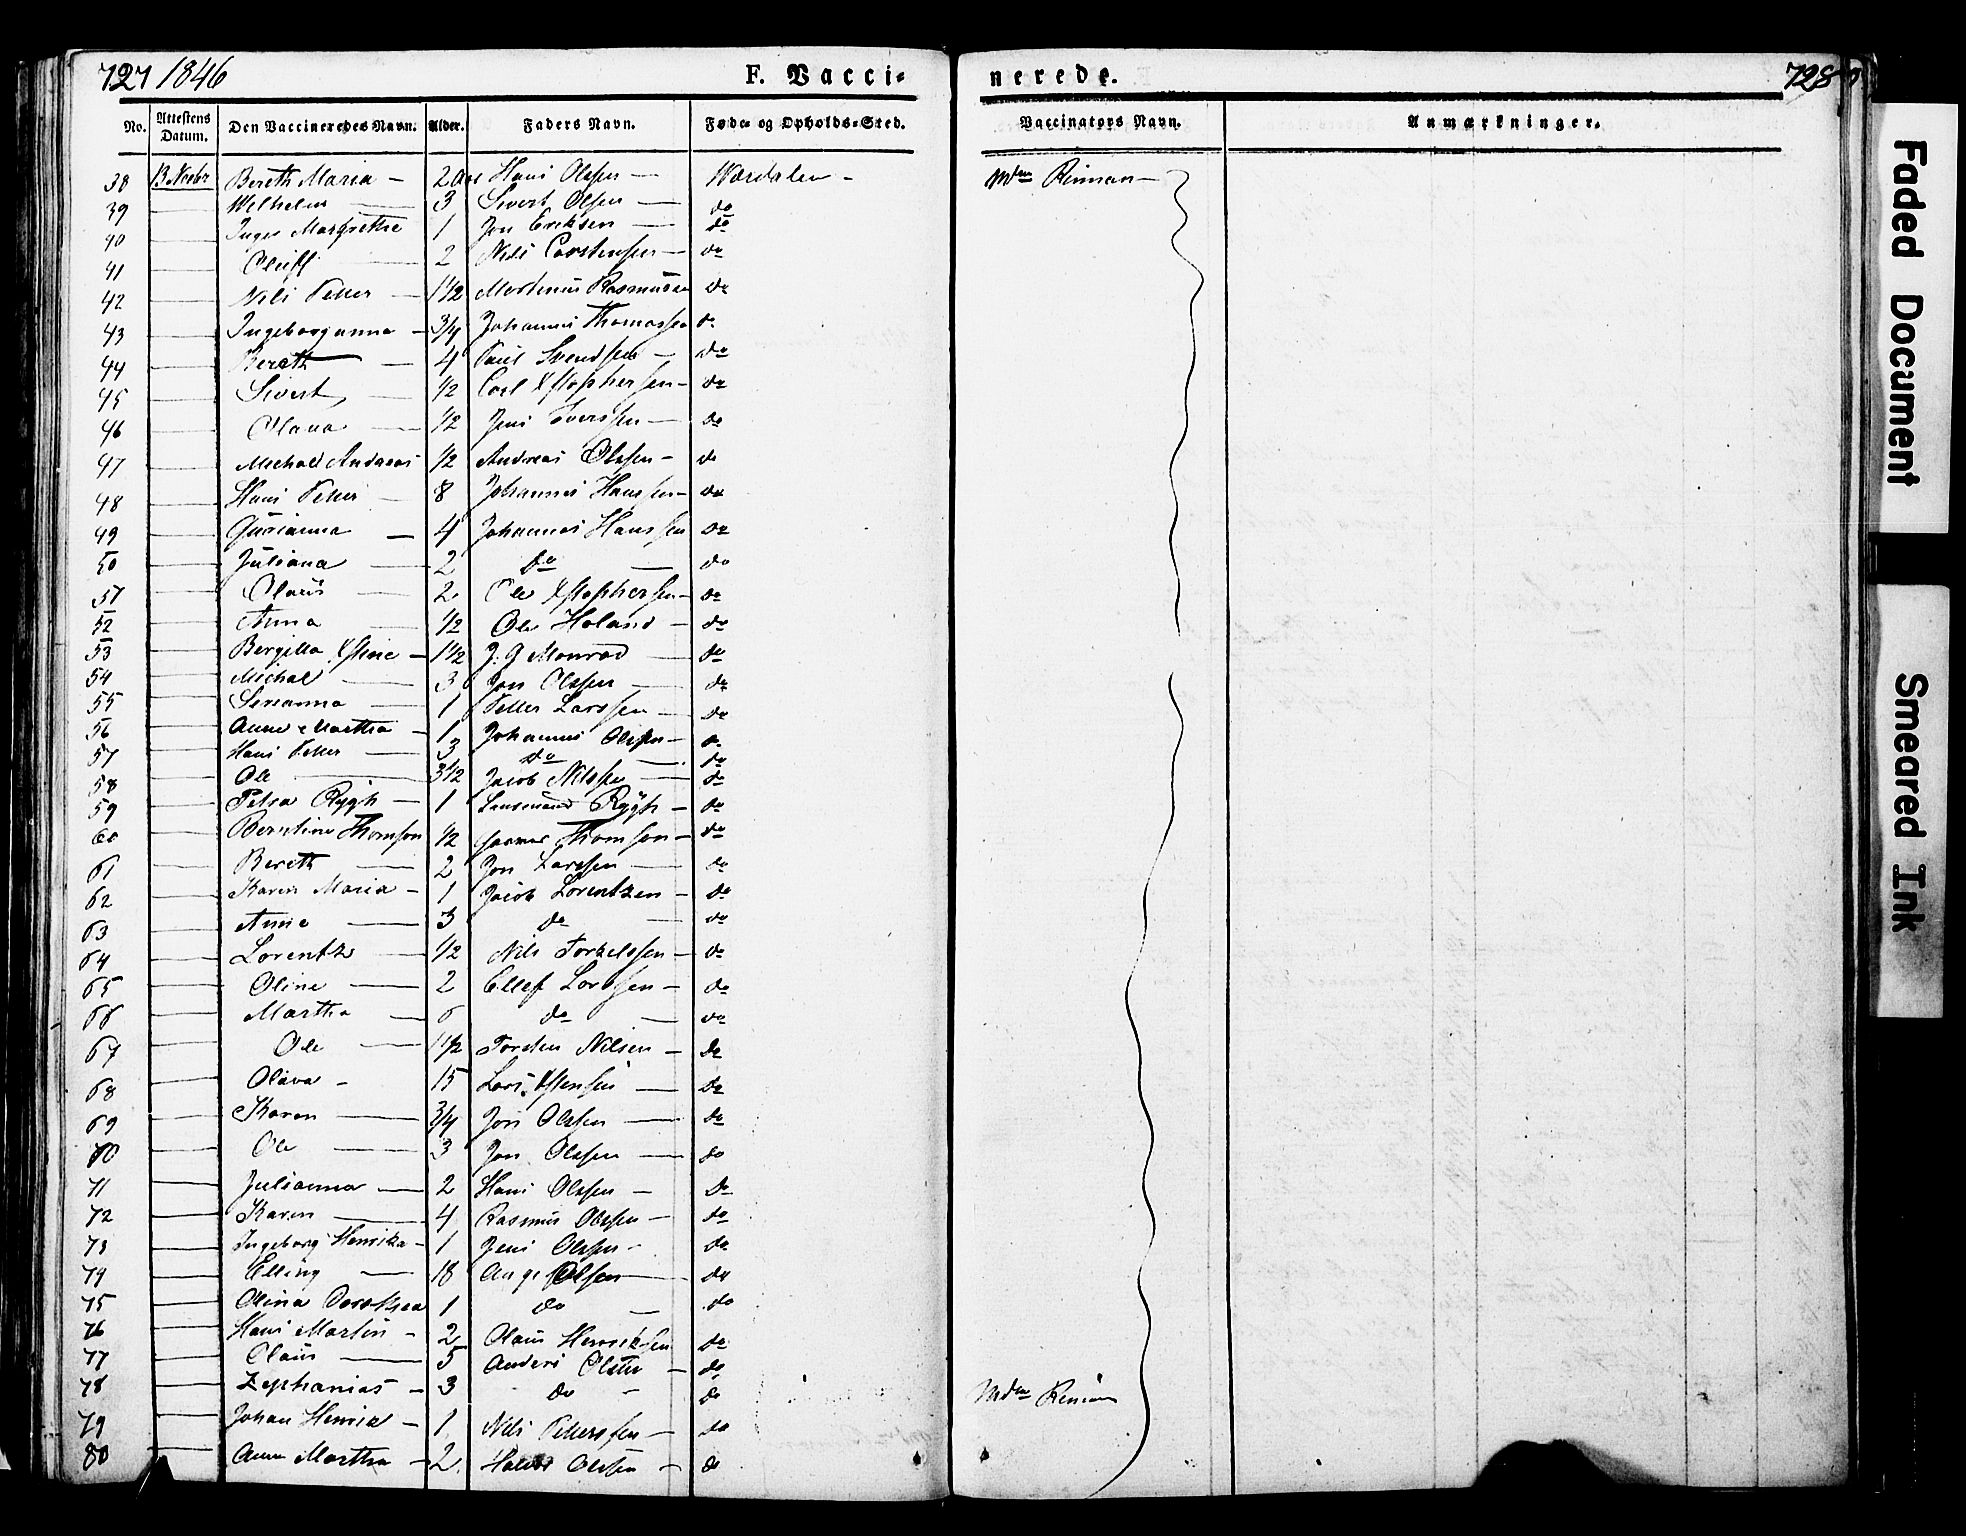 727 1846 F. Vacci-
nerede. 728
No. Attestens Datum. Den Vaccineredes Navn. Alder. Faders Navn. Føde- og Opholds-Sted.
Vaccinators Navn. Anmærkninger.
38 13 Novbr Bereth Maria - 2 Aar Hans Olssen - Værdalen - Mdm Rinnan -
39 Wilhelm 3 Sivert Olsen do
40 Inger Margrethe 1 Jon Eriksen do
41 2 Nils Carstensen - do
42 Nils Petter 1 1/2 Martinus Rasmussen do
43 Ingeboranna - 3/4 Johannes Thomassen do
44 Bereth - 4 Paul Svendsen - do
45 Sivert 1/2 Carl Xstophersen - do
46 Olava 1/2 Jens Iverssen - do
47 Michael Andreas 1/2 Andreas Olssen - do
48 Hans Petter - 8 Johannes Hanssen - do
49 Gurianna - 4 Johannes Hanssen do
50 Juliana 2 do - do
51 Olaus 2 Ole Xstophersen - do
52 Anna 1/2 Ole Holand - do
53 Bergitta Xstine - 1 1/2 J. G Monrad do
54 Michal 3 Jon Olssen do
55 Serianna - 1 Petter Larssen do
56 Anne Martha - 1 Johannes Olssen - do
57 Hans Petter 3 do - do
58 Ole 3 1/2 Jacob Nilssen do
59 Petra Rygh - 1 Lensmand Rygh - do
60 Berntine Thomson 1/2 Thomson - do
61 Bereth 2 Jon Larssen do
62 Karen Maria - 1 Jacob Lorentzen - do
63 Anne 3 do do
64 Lorentz 1/2 Nils Torkelssen - do
65 Oline 2 Ellef Larssen - do
66 Martha 6 do do
67 Ole 1 1/2 Torsten Nilsen - do
68 Olava - 15 Lars Xstensen do
69 Karen 3/4 Jon Olssen do
70 Ole 3 Jon Olssen do
71 Julianna 2 Hans Olssen - do
72 Karen 4 Rasmus Olssen - do
73 Ingeborg Henrika - 1 Jens Olssen - do
74 Elling 18 Olsen do
75 Olina Dorothea 1 do - do
76 Hans Martin - 2 Olaus Henriksen do
77 Olaus 5 Anders do
78 Zephanias - 3 do - do Mdm Rinnan
79 Johan Henrik - 1 Nils Petterssen - do
80 Anne Martha - 2 Olssen - do
Faded Document
Smeared Ink